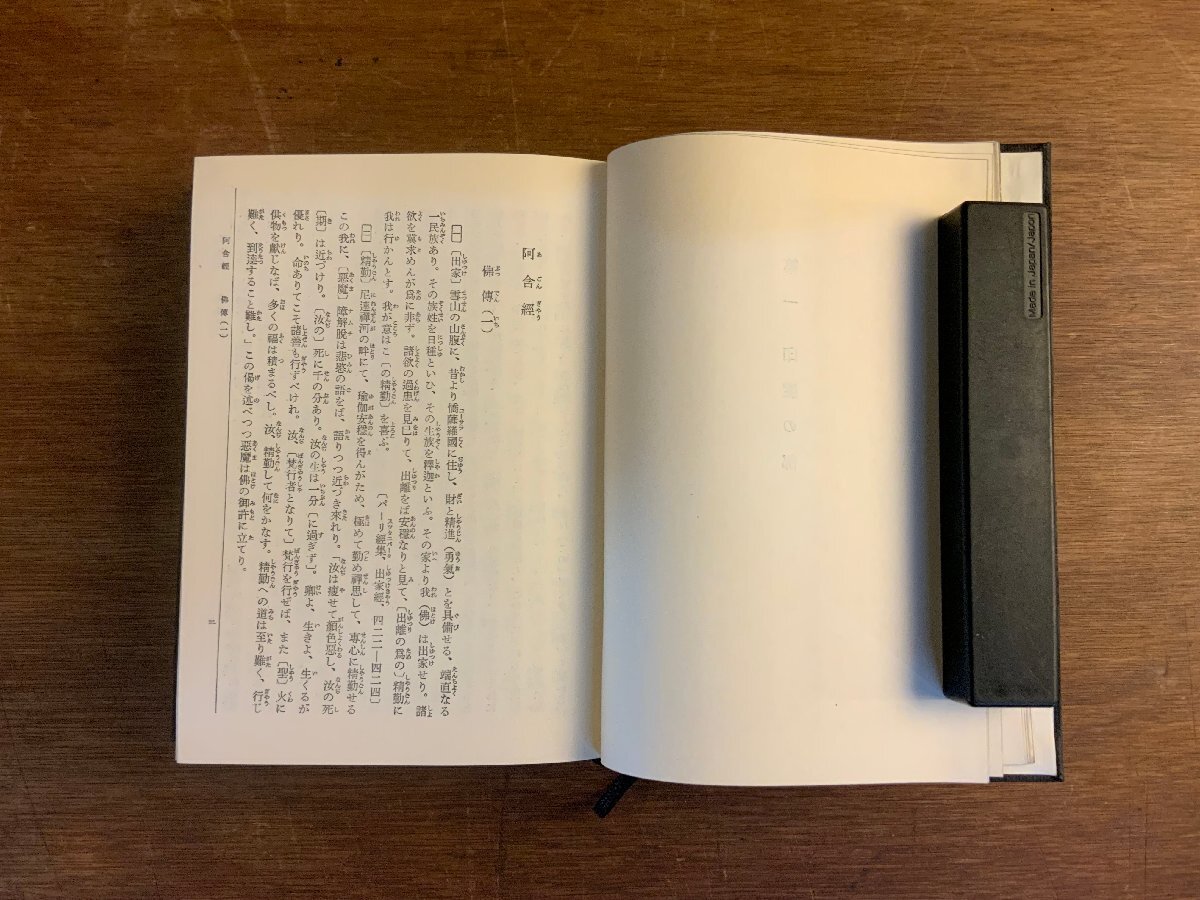 阿含經
佛傳(一)
〔一〕〔出家〕雪山の山腹に、昔より憍薩羅國に住し、財と精進(勇氣)とを具備せる、端直なる
一民族あり。その族姓を日種といひ、その生族を釋迦といふ。その家より我(佛)は出家せり。諸
欲を冀求めんが爲に非ず。諸欲の過患を見已りて、出離をば安穩なりと見て、〔出離の爲の〕精勤に
我は行かんとす。我が意はこ〔の精勤〕を喜ぶ。〔パーリ經集、出家經、四二二―四二四〕
〔二〕〔精勤〕尼連禪河の畔にて、瑜伽安穩を得んがため、極めて勤め禪思して、專心に精勤せる
この我に、〔惡魔〕障解脫は悲愍の語をば、語りつつ近づき來れり。「汝は瘦せて顏色惡し、汝の死
〔期〕は近づけり。〔汝の〕死に千の分あり。汝の生は一分〔に過ぎず〕。卿よ、生きよ、生くるが
優れり。命ありてこそ諸善も行ずべけれ。汝、〔梵行者となりて〕梵行を行ぜば、また〔聖〕火に
供物を獻じなば、多くの福は積まるべし。汝、精勤して何をかなす。精勤への道は至り難く、行じ
難く、到達すること難し。」この偈を述べつつ惡魔は佛の御許に立てり。
阿含經 佛傳(一)
三
Made in Japan/Japon